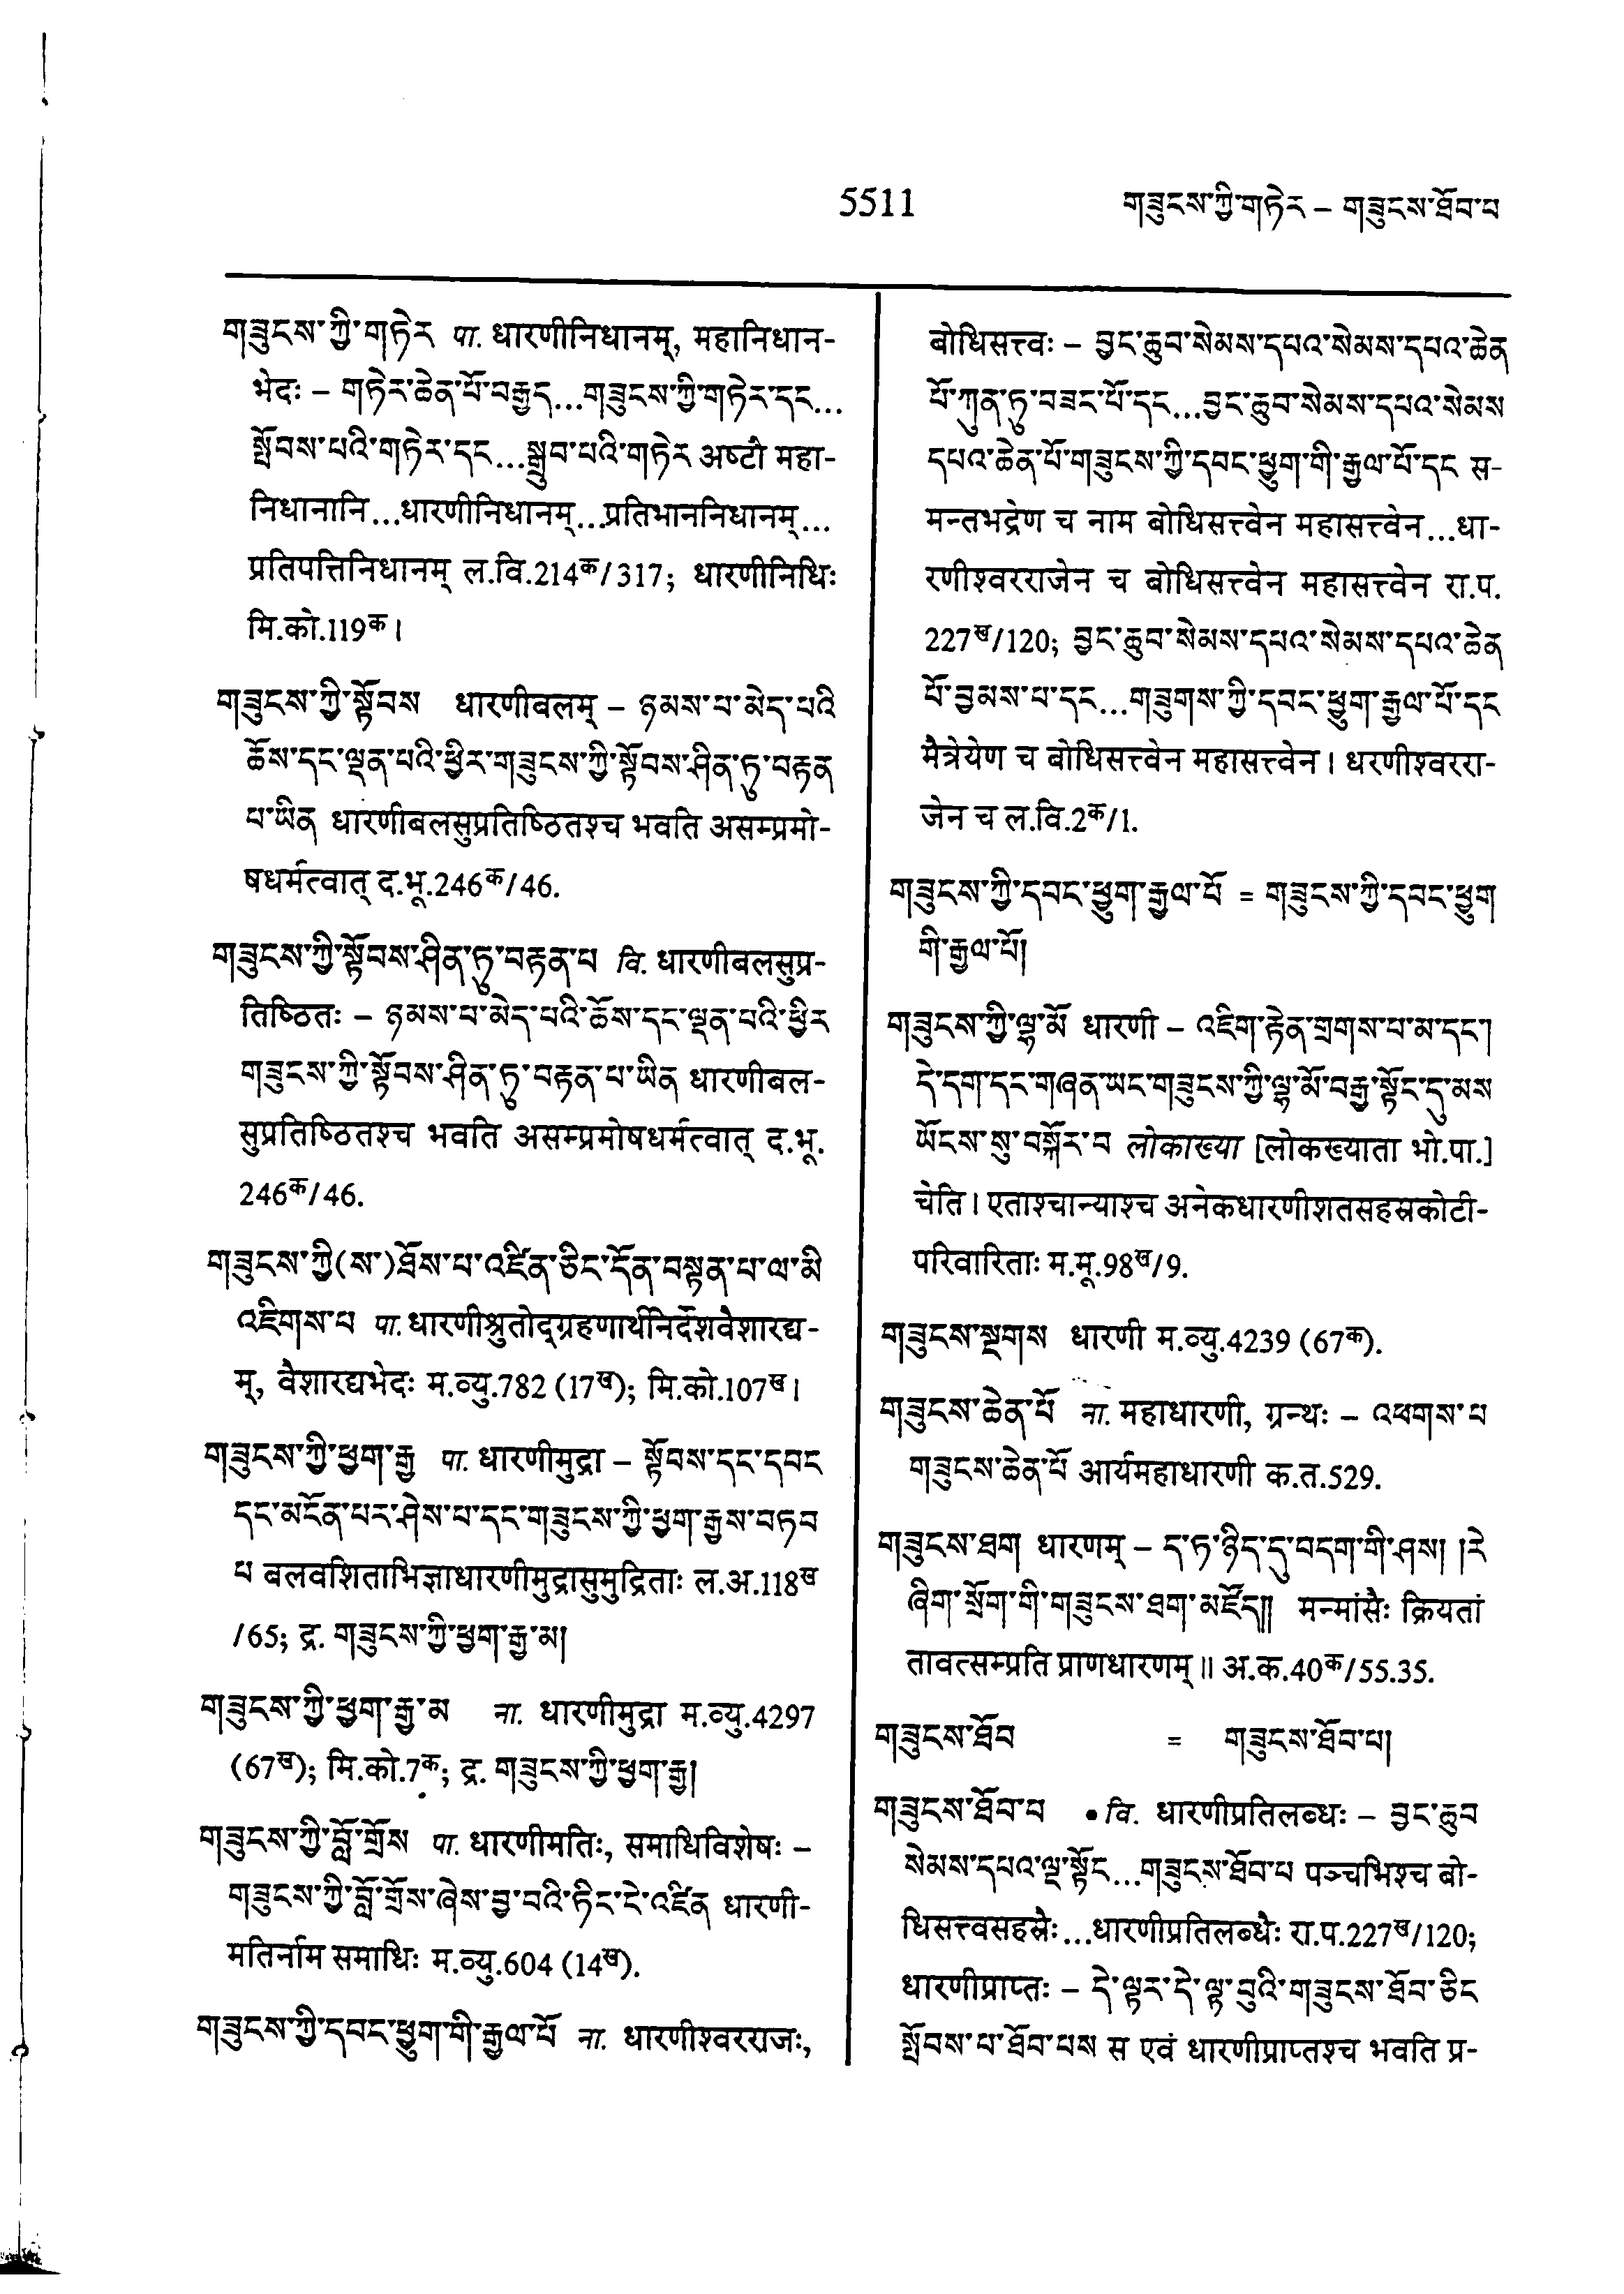 5511
གཟུངས་ཀྱི་གཏེར – གཟུངས་ཐོབ་པ
གཟུངས་ཀྱི་གཏེར पा. धारणीनिधानम्, महानिधान-
भेदः – གཏེར་ཆེན་པོ་བརྒྱད...གཟུངས་ཀྱི་གཏེར་དང...
སྤོབས་པའི་གཏེར་དང...སྒྲུབ་པའི་གཏེར अष्टौ महा-
निधानानि...धारणीनिधानम्...प्रतिभाननिधानम्...
प्रतिपत्तिनिधानम् ल.वि.214क/317; धारणीनिधिः
मि.को.119क।
གཟུངས་ཀྱི་སྟོབས धारणीबलम् – ཉམས་པ་མེད་པའི
ཆོས་དང་ལྡན་པའི་ཕྱིར་གཟུངས་ཀྱི་སྟོབས་ཤིན་ཏུ་བརྟན
པ་ཡིན धारणीबलसुप्रतिष्ठितश्च भवति असम्प्रमो-
षधर्मत्वात् द.भू.246क/46.
གཟུངས་ཀྱི་སྟོབས་ཤིན་ཏུ་བརྟན་པ वि. धारणीबलसुप्र-
तिष्ठितः – ཉམས་པ་མེད་པའི་ཆོས་དང་ལྡན་པའི་ཕྱིར
གཟུངས་ཀྱི་སྟོབས་ཤིན་ཏུ་བརྟན་པ་ཡིན धारणीबल-
सुप्रतिष्ठितश्च भवति असम्प्रमोषधर्मत्वात् द.भू.
246क/46.
གཟུངས་ཀྱི(ས་)ཐོས་པ་འཛིན་ཅིང་དོན་བསྟན་པ་ལ་མི
འཇིགས་པ पा. धारणीश्रुतोद्ग्रहणार्थनिर्देशवैशारद्य-
म्, वैशारद्यभेदः म.व्यु.782 (17ख); मि.को.107ख।
གཟུངས་ཀྱི་ཕྱག་རྒྱ पा. धारणीमुद्रा – སྟོབས་དང་དབང
དང་མངོན་པར་ཤེས་པ་དང་གཟུངས་ཀྱི་ཕྱག་རྒྱས་བཏབ
པ बलवशिताभिज्ञाधारणीमुद्रासुमुद्रिताः ल.अ.118ख
/65; द्र. གཟུངས་ཀྱི་ཕྱག་རྒྱ་མ།
གཟུངས་ཀྱི་ཕྱག་རྒྱ་མ ना. धारणीमुद्रा म.व्यु.4297
(67ख); मि.को.7क; द्र. གཟུངས་ཀྱི་ཕྱག་རྒྱ།
གཟུངས་ཀྱི་བློ་གྲོས पा. धारणीमतिः, समाधिविशेषः –
གཟུངས་ཀྱི་བློ་གྲོས་ཞེས་བྱ་བའི་ཏིང་ངེ་འཛིན धारणी-
मतिर्नाम समाधिः म.व्यु.604 (14ख).
གཟུངས་ཀྱི་དབང་ཕྱུག་གི་རྒྱལ་པོ ना. धारणीश्वरराजः,
बोधिसत्त्वः – བྱང་ཆུབ་སེམས་དཔའ་སེམས་དཔའ་ཆེན
པོ་ཀུན་ཏུ་བཟང་པོ་དང...བྱང་ཆུབ་སེམས་དཔའ་སེམས
དཔའ་ཆེན་པོ་གཟུངས་ཀྱི་དབང་ཕྱུག་གི་རྒྱལ་པོ་དང स-
मन्तभद्रेण च नाम बोधिसत्त्वेन महासत्त्वेन...धा-
रणीश्वरराजेन च बोधिसत्त्वेन महासत्त्वेन रा.प.
227ख/120; བྱང་ཆུབ་སེམས་དཔའ་སེམས་དཔའ་ཆེན
པོ་བྱམས་པ་དང...གཟུགས་ཀྱི་དབང་ཕྱུག་རྒྱལ་པོ་དང
मैत्रेयेण च बोधिसत्त्वेन महासत्त्वेन। धरणीश्वररा-
जेन च ल.वि.2क/1.
གཟུངས་ཀྱི་དབང་ཕྱུག་རྒྱལ་པོ = གཟུངས་ཀྱི་དབང་ཕྱུག
གི་རྒྱལ་པོ།
གཟུངས་ཀྱི་ལྷ་མོ धारणी – འཇིག་རྟེན་གྲགས་པ་མ་དང་།
དེ་དག་དང་གཞན་ཡང་གཟུངས་ཀྱི་ལྷ་མོ་བརྒྱ་སྟོང་དུ་མས
ཡོངས་སུ་བསྐོར་བ लोकाख्या [लोकख्याता भो.पा.]
चेति। एताश्चान्याश्च अनेकधारणीशतसहस्रकोटी-
परिवारिताः म.मू.98ख/9.
གཟུངས་སྔགས धारणी म.व्यु.4239 (67क).
གཟུངས་ཆེན་པོ ना. महाधारणी, ग्रन्थः – འཕགས་པ
གཟུངས་ཆེན་པོ आर्यमहाधारणी क.त.529.
གཟུངས་ཐག धारणम् – ད་ཏ་ཉིད་དུ་བདག་གི་ཤས། །རེ
ཞིག་སྲོག་གི་གཟུངས་ཐག་མཛོད།། मन्मांसैः क्रियतां
तावत्सम्प्रति प्राणधारणम्॥ अ.क.40क/55.35.
གཟུངས་ཐོབ = གཟུངས་ཐོབ་པ།
གཟུངས་ཐོབ་པ • वि. धारणीप्रतिलब्धः – བྱང་ཆུབ
སེམས་དཔའ་ལྔ་སྟོང...གཟུངས་ཐོབ་པ पञ्चभिश्च बो-
धिसत्त्वसहस्रैः...धारणीप्रतिलब्धैः रा.प.227ख/120;
धारणीप्राप्तः – དེ་ལྟར་དེ་ལྟ་བུའི་གཟུངས་ཐོབ་ཅིང
སྤོབས་པ་ཐོབ་པས स एवं धारणीप्राप्तश्च भवति प्र-